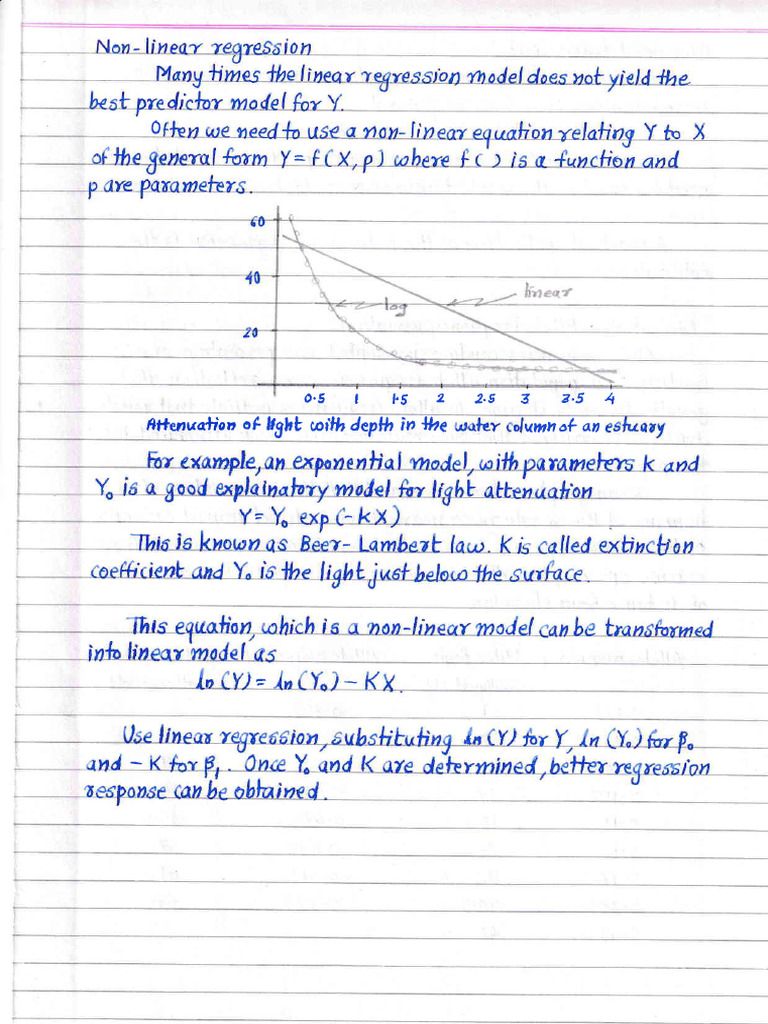 Non-linear regression
Many times the linear regression model does not yield the
best predictor model for Y.
Often we need to use a non-linear equation relating Y to X
of the general form Y = f(X, p) where f() is a function and
p are parameters.
60
40
20
log
linear
0.5 1 1.5 2 2.5 3 3.5 4
Attenuation of light with depth in the water column of an estuary
For example, an exponential model, with parameters k and
Y₀ is a good explainatory model for light attenuation
Y = Y₀ exp (-kX)
This is known as Beer-Lambert law. K is called extinction
coefficient and Y₀ is the light just below the surface.
This equation, which is a non-linear model can be transformed
into linear model as
ln (Y) = ln (Y₀) - KX.
Use linear regression, substituting ln (Y) for Y, ln (Y₀) for β₀
and - K for β₁. Once Y₀ and K are determined, better regression
response can be obtained.